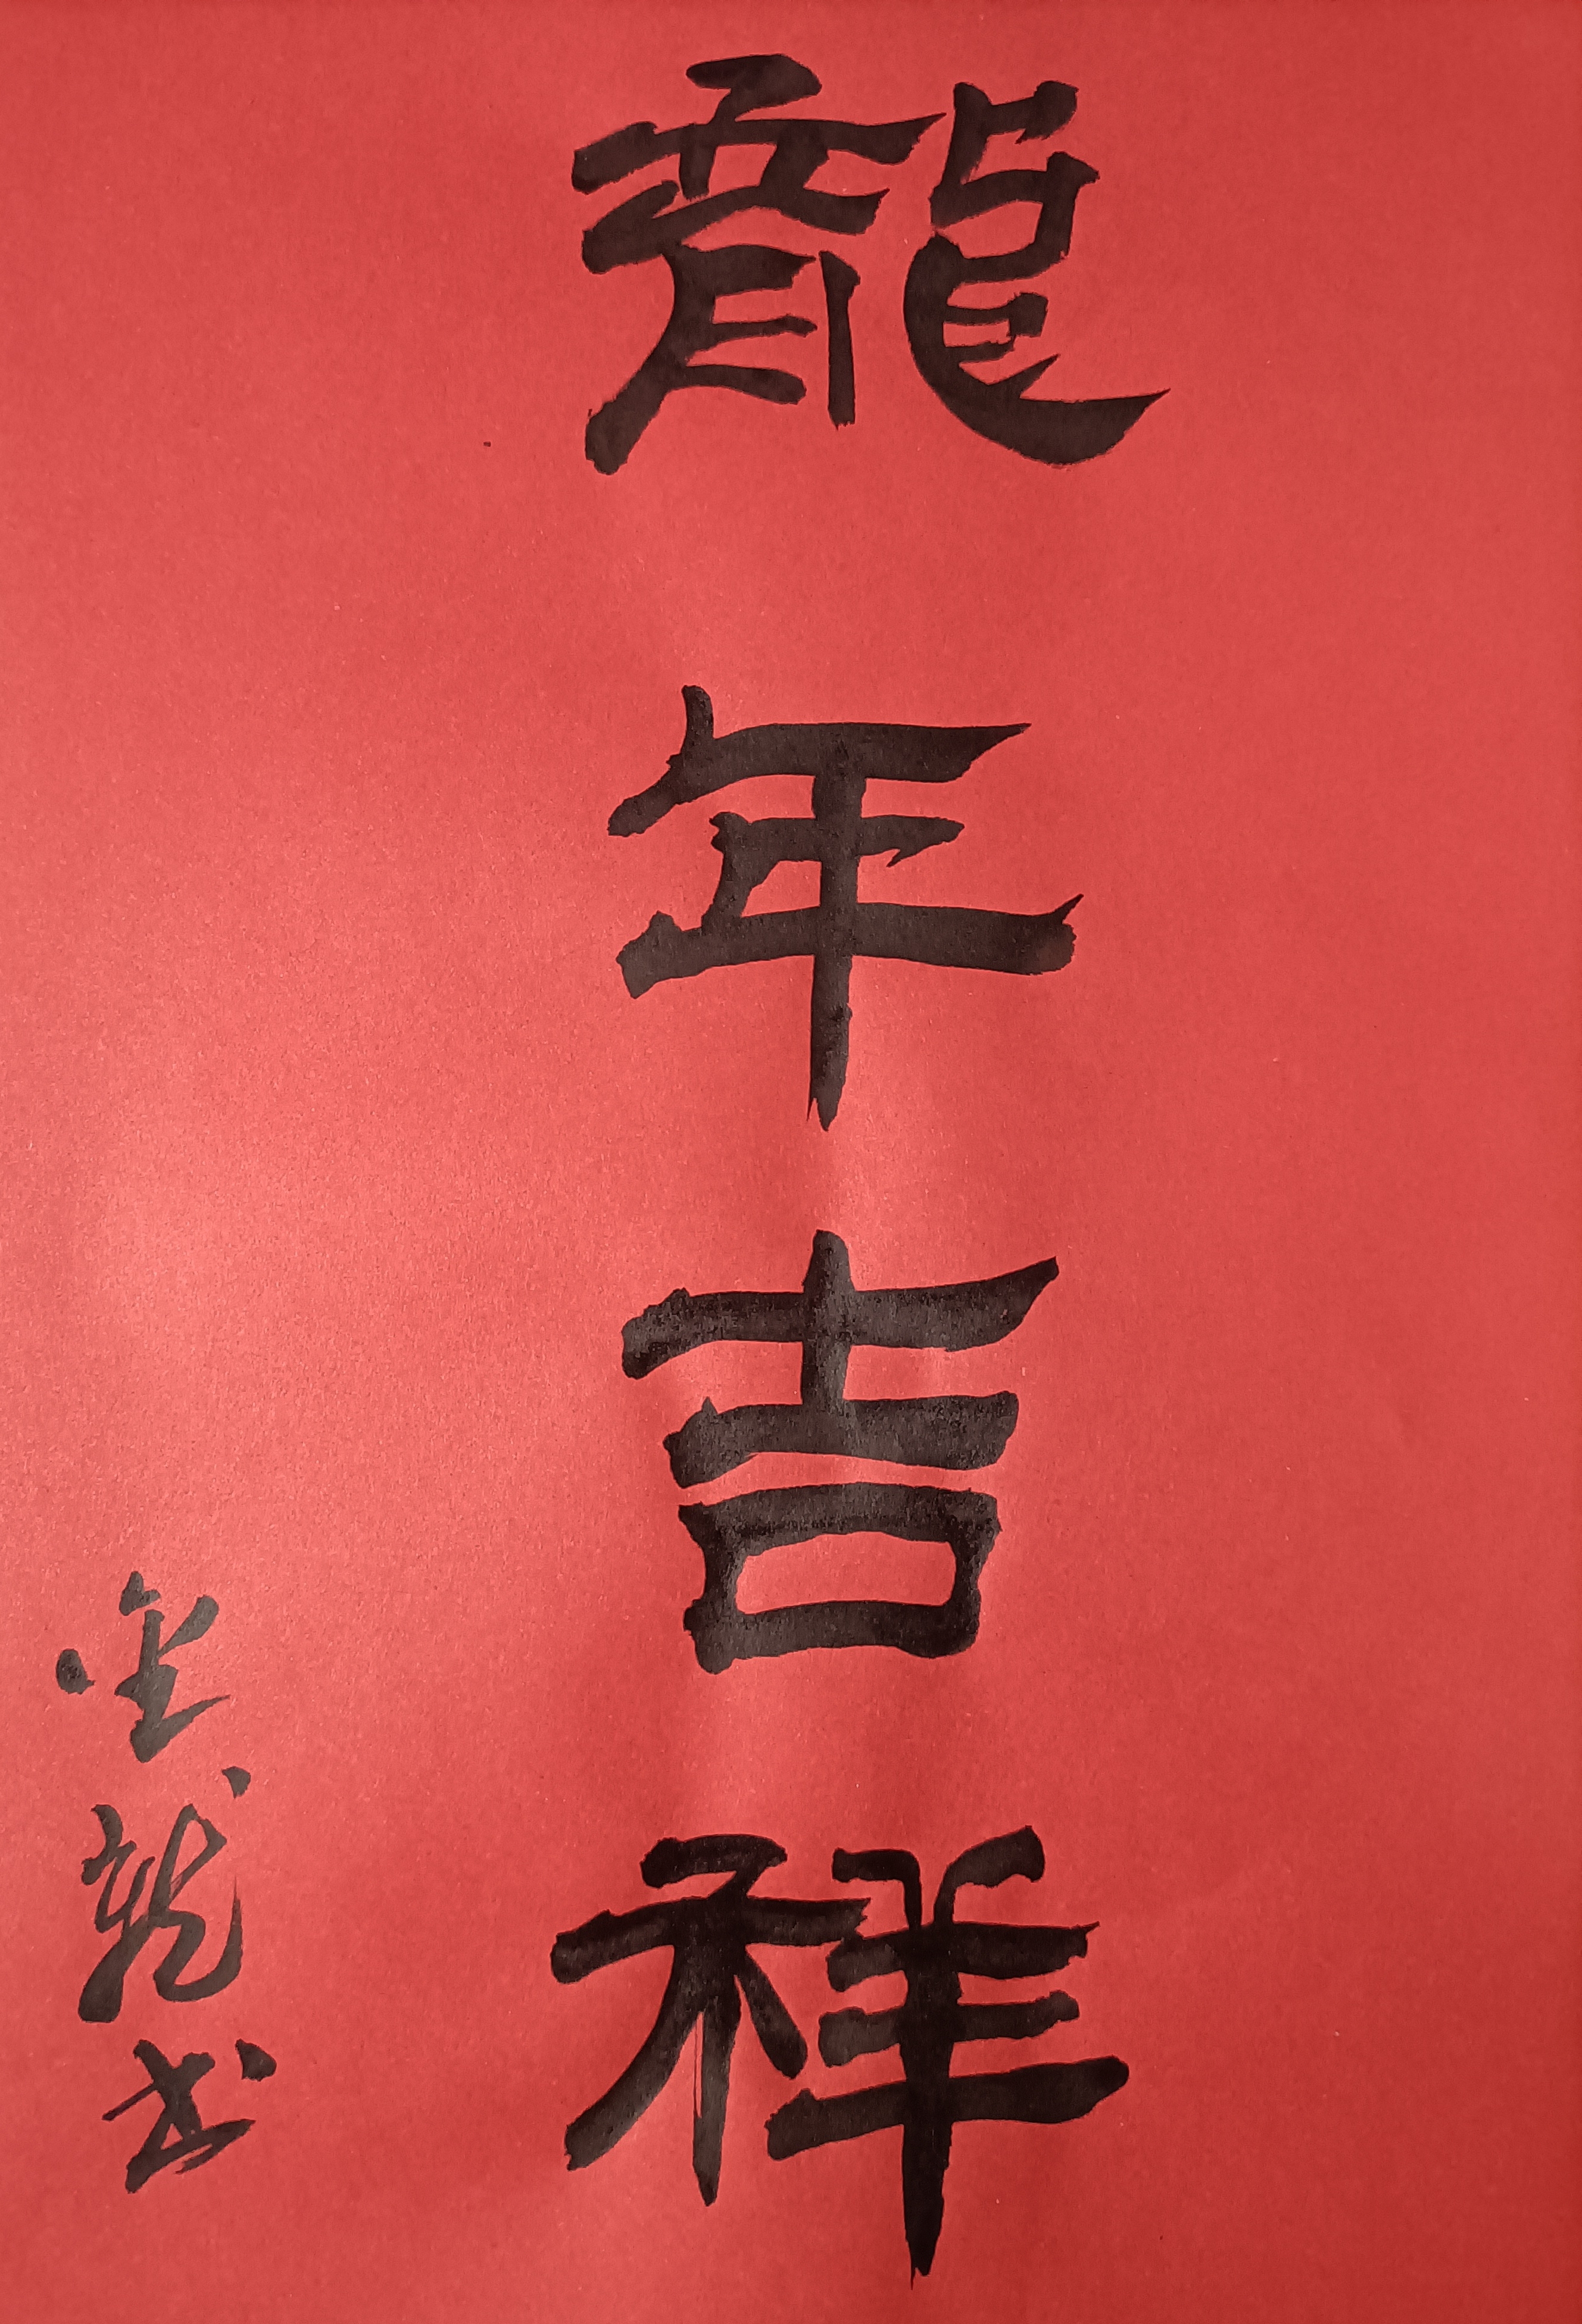 龍年吉祥
金龙书